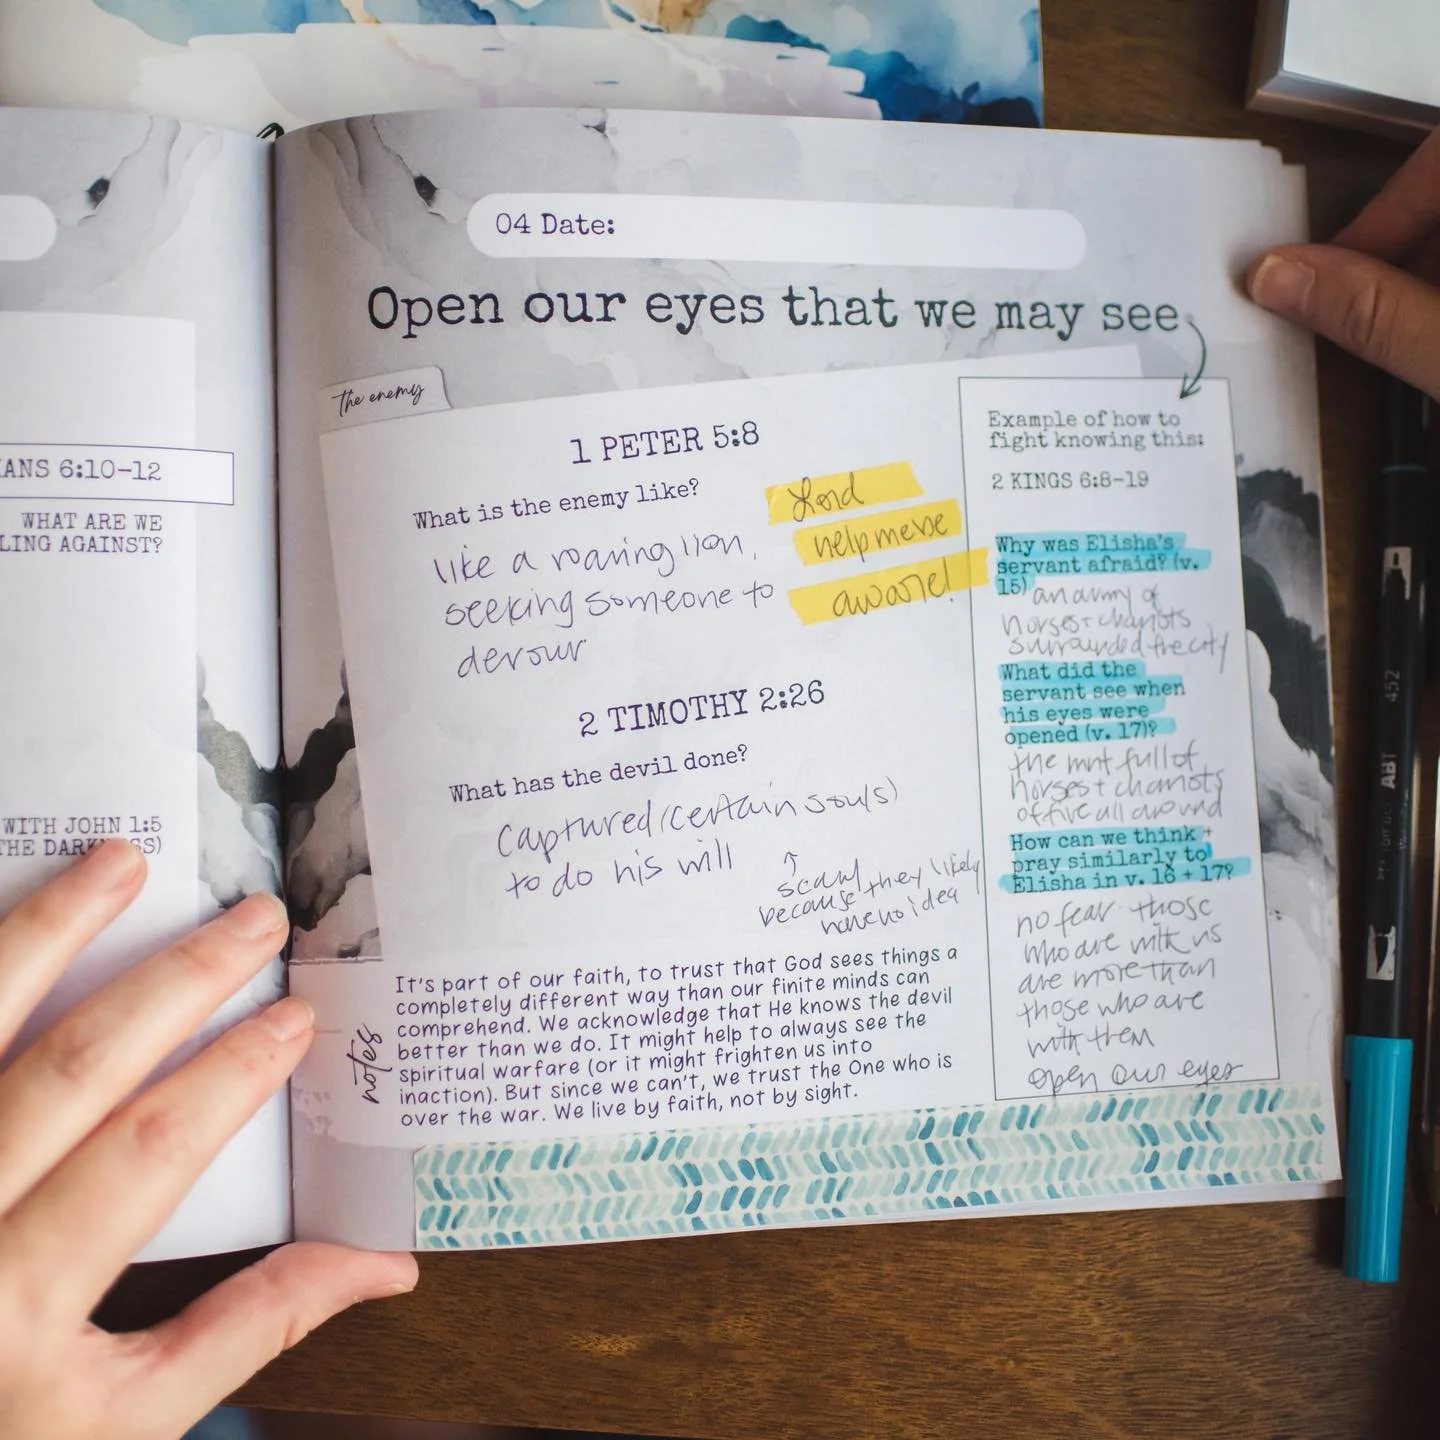 ANS 6:10-12
WHAT ARE WE
LING AGAINST?
WITH JOHN 1:5
THE DARKNESS)
04 Date:
Open our eyes that we may see
the enemy
1 PETER 5:8
What is the enemy like?
like a roaring lion,
seeking someone to
devour
Lord
help me be
aware!
2 TIMOTHY 2:26
What has the devil done?
captured (certain souls)
to do his will
↑
scary
because they likely
have no idea
notes
It's part of our faith, to trust that God sees things a
completely different way than our finite minds can
comprehend. We acknowledge that He knows the devil
better than we do. It might help to always see the
spiritual warfare (or it might frighten us into
inaction). But since we can't, we trust the One who is
over the war. We live by faith, not by sight.
Example of how to
fight knowing this:
2 KINGS 6:8-19
Why was Elisha's
servant afraid? (v.
15) an army of
horses + chariots
surrounded the city
What did the
servant see when
his eyes were
opened (v. 17)?
the mnt full of
horses + chariots
of fire all around
How can we think +
pray similarly to
Elisha in v. 16 + 17?
no fear those
who are with us
are more than
those who are
with them
open our eyes
452
ABT